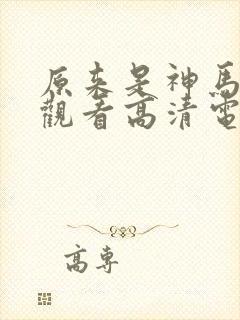 原来是神馬
觀看高清電
高專